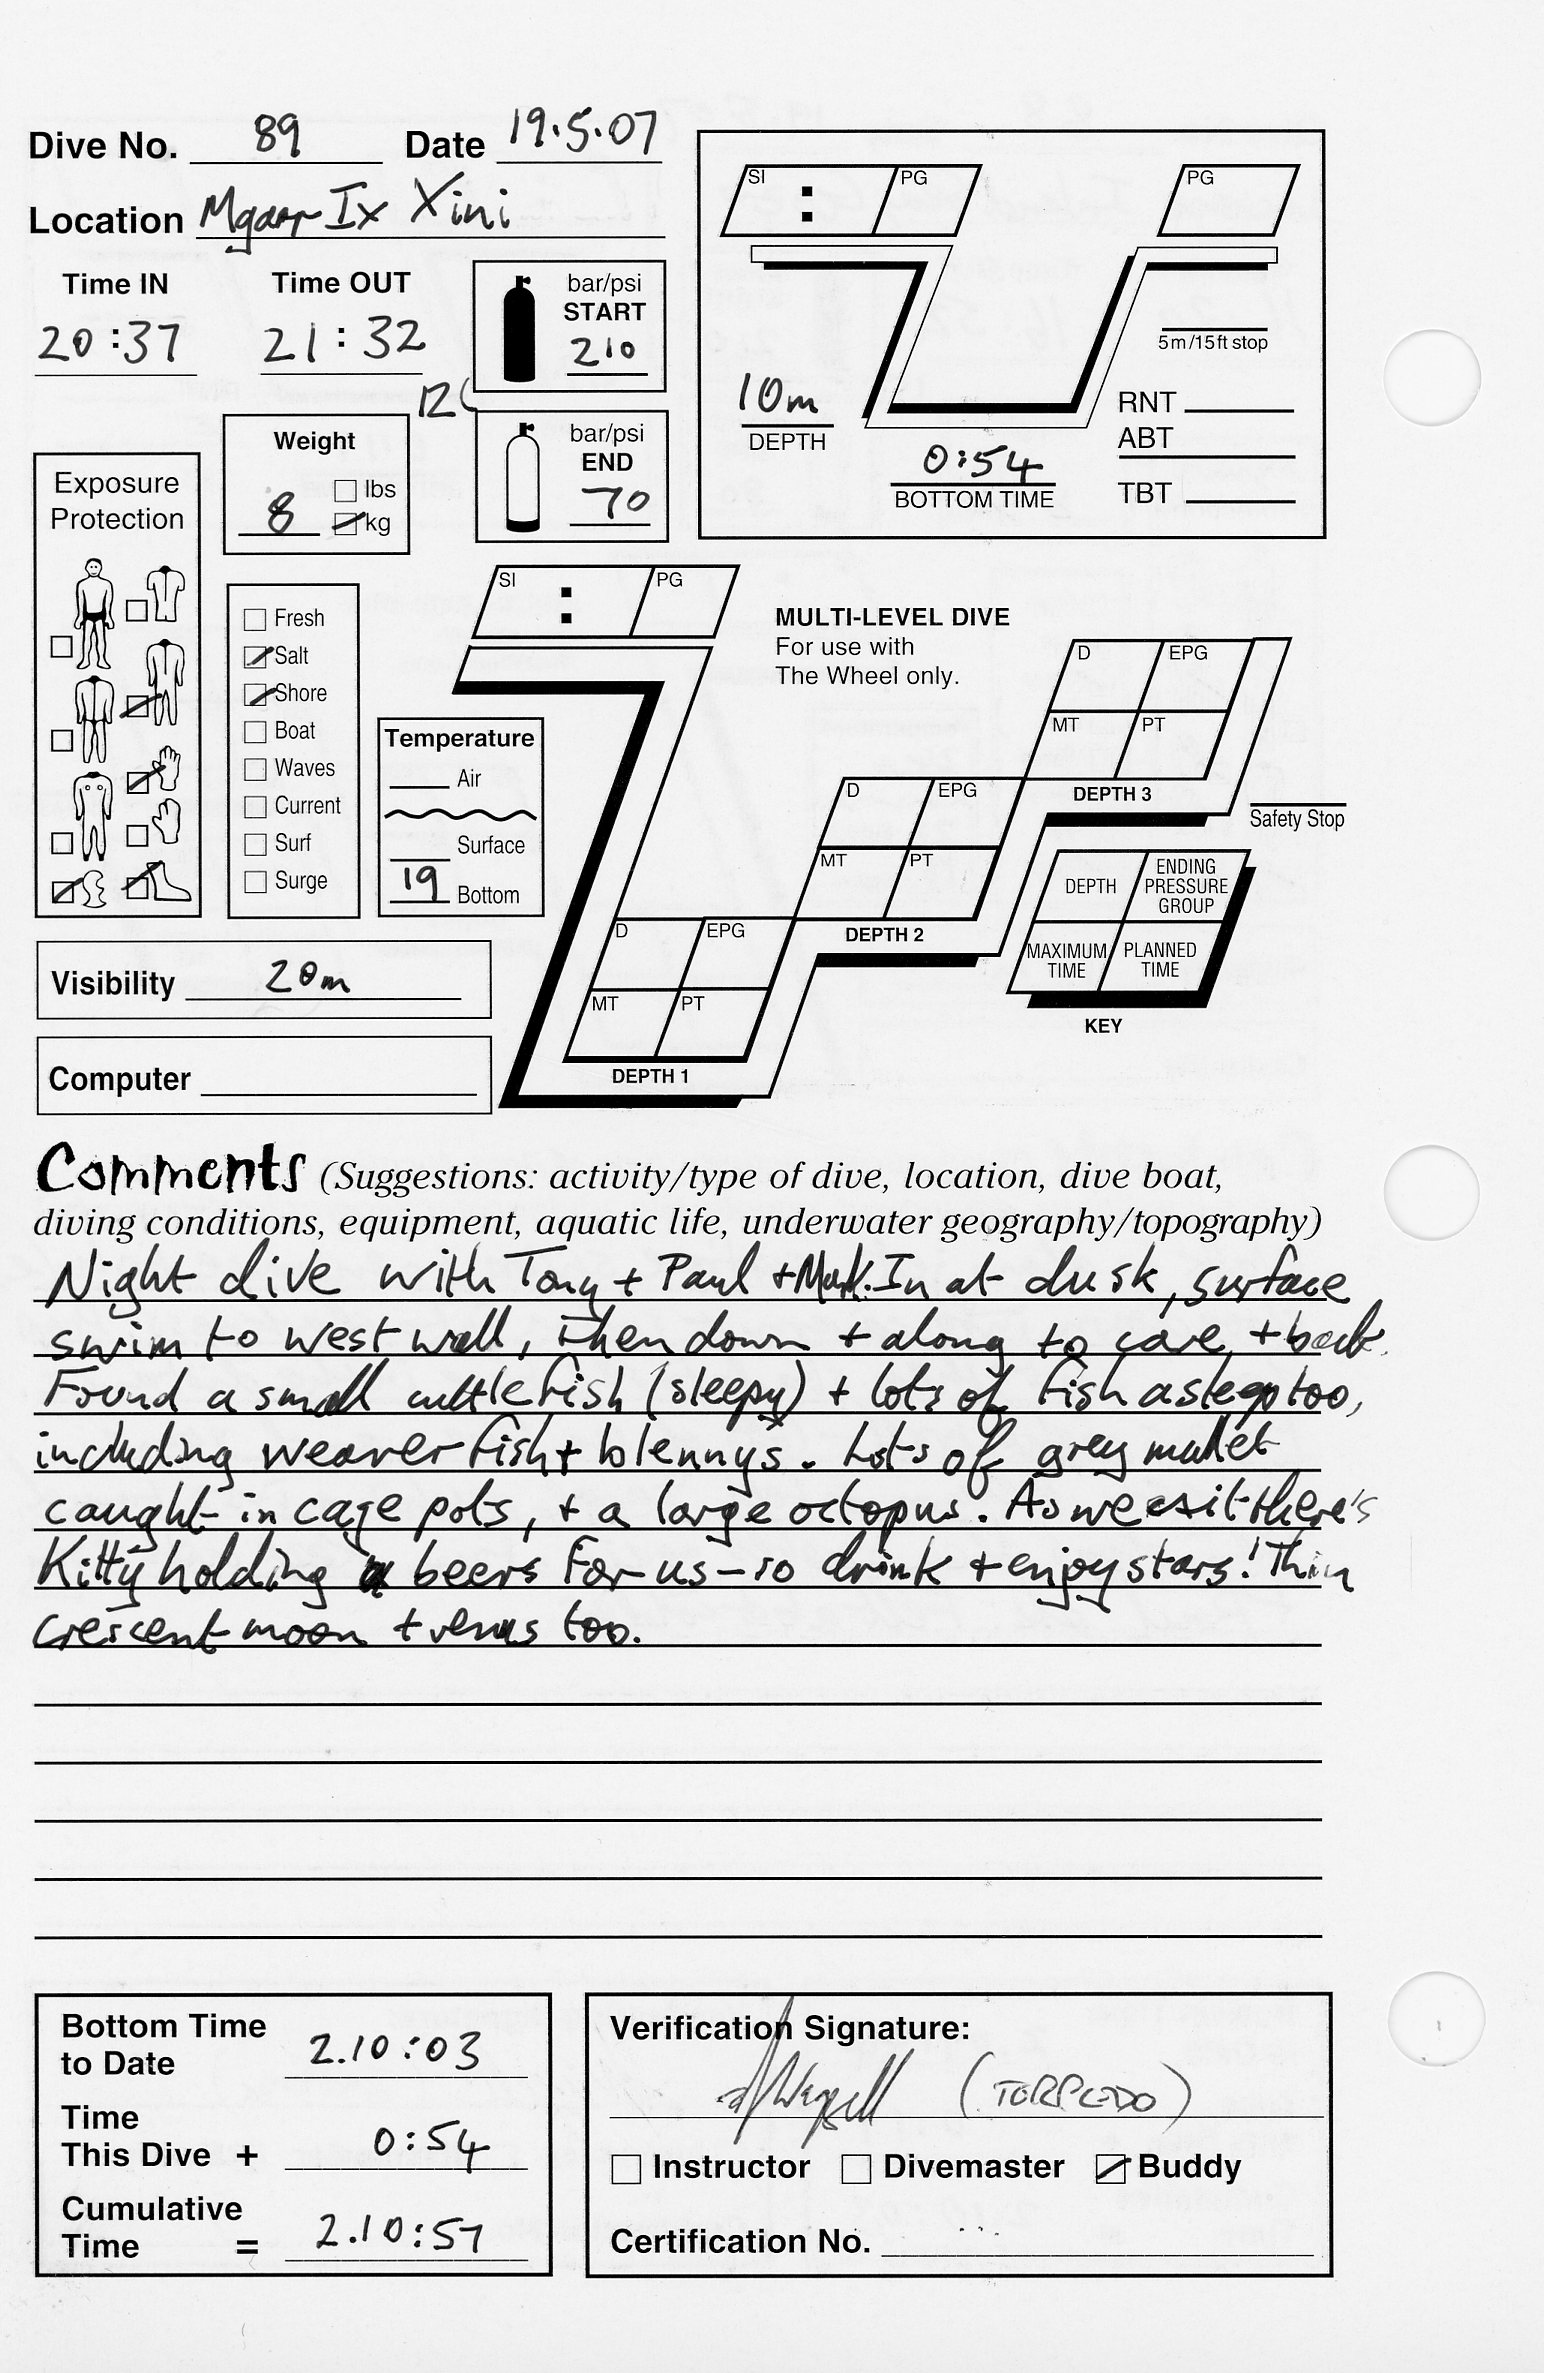 Dive No. 89 Date 19.5.07
Location Mgarr Ix Xini
Time IN Time OUT
20:37 21:32
bar/psi
START
210
12L
bar/psi
END
70
Weight
8
lbs
kg
Exposure
Protection
Fresh
Salt
Shore
Boat
Waves
Current
Surf
Surge
Temperature
Air
Surface
19 Bottom
Visibility 20m
Computer
SI : PG
PG
5m/15ft stop
10m
DEPTH
0:54
BOTTOM TIME
RNT
ABT
TBT
SI : PG
MULTI-LEVEL DIVE
For use with
The Wheel only.
D EPG
MT PT
DEPTH 3
D EPG
MT PT
DEPTH 2
D EPG
MT PT
DEPTH 1
Safety Stop
DEPTH
ENDING
PRESSURE
GROUP
MAXIMUM
TIME
PLANNED
TIME
KEY
Comments (Suggestions: activity/type of dive, location, dive boat,
diving conditions, equipment, aquatic life, underwater geography/topography)
Night dive with Tony + Paul + Mark. In at dusk, surface
swim to west wall, then down + along to cave, + back.
Found a small cuttlefish (sleepy) + lots of fish asleep too,
including weaver fish + blennys. Lots of grey mullet
caught in cage pots, + a large octopus. As we exit there's
Kitty holding beers for us - so drink + enjoy stars! Thin
crescent moon + venus too.
Bottom Time
to Date 2.10:03
Time
This Dive + 0:54
Cumulative
Time = 2.10:57
Verification Signature:
(TORPEDO)
Instructor Divemaster Buddy
Certification No.